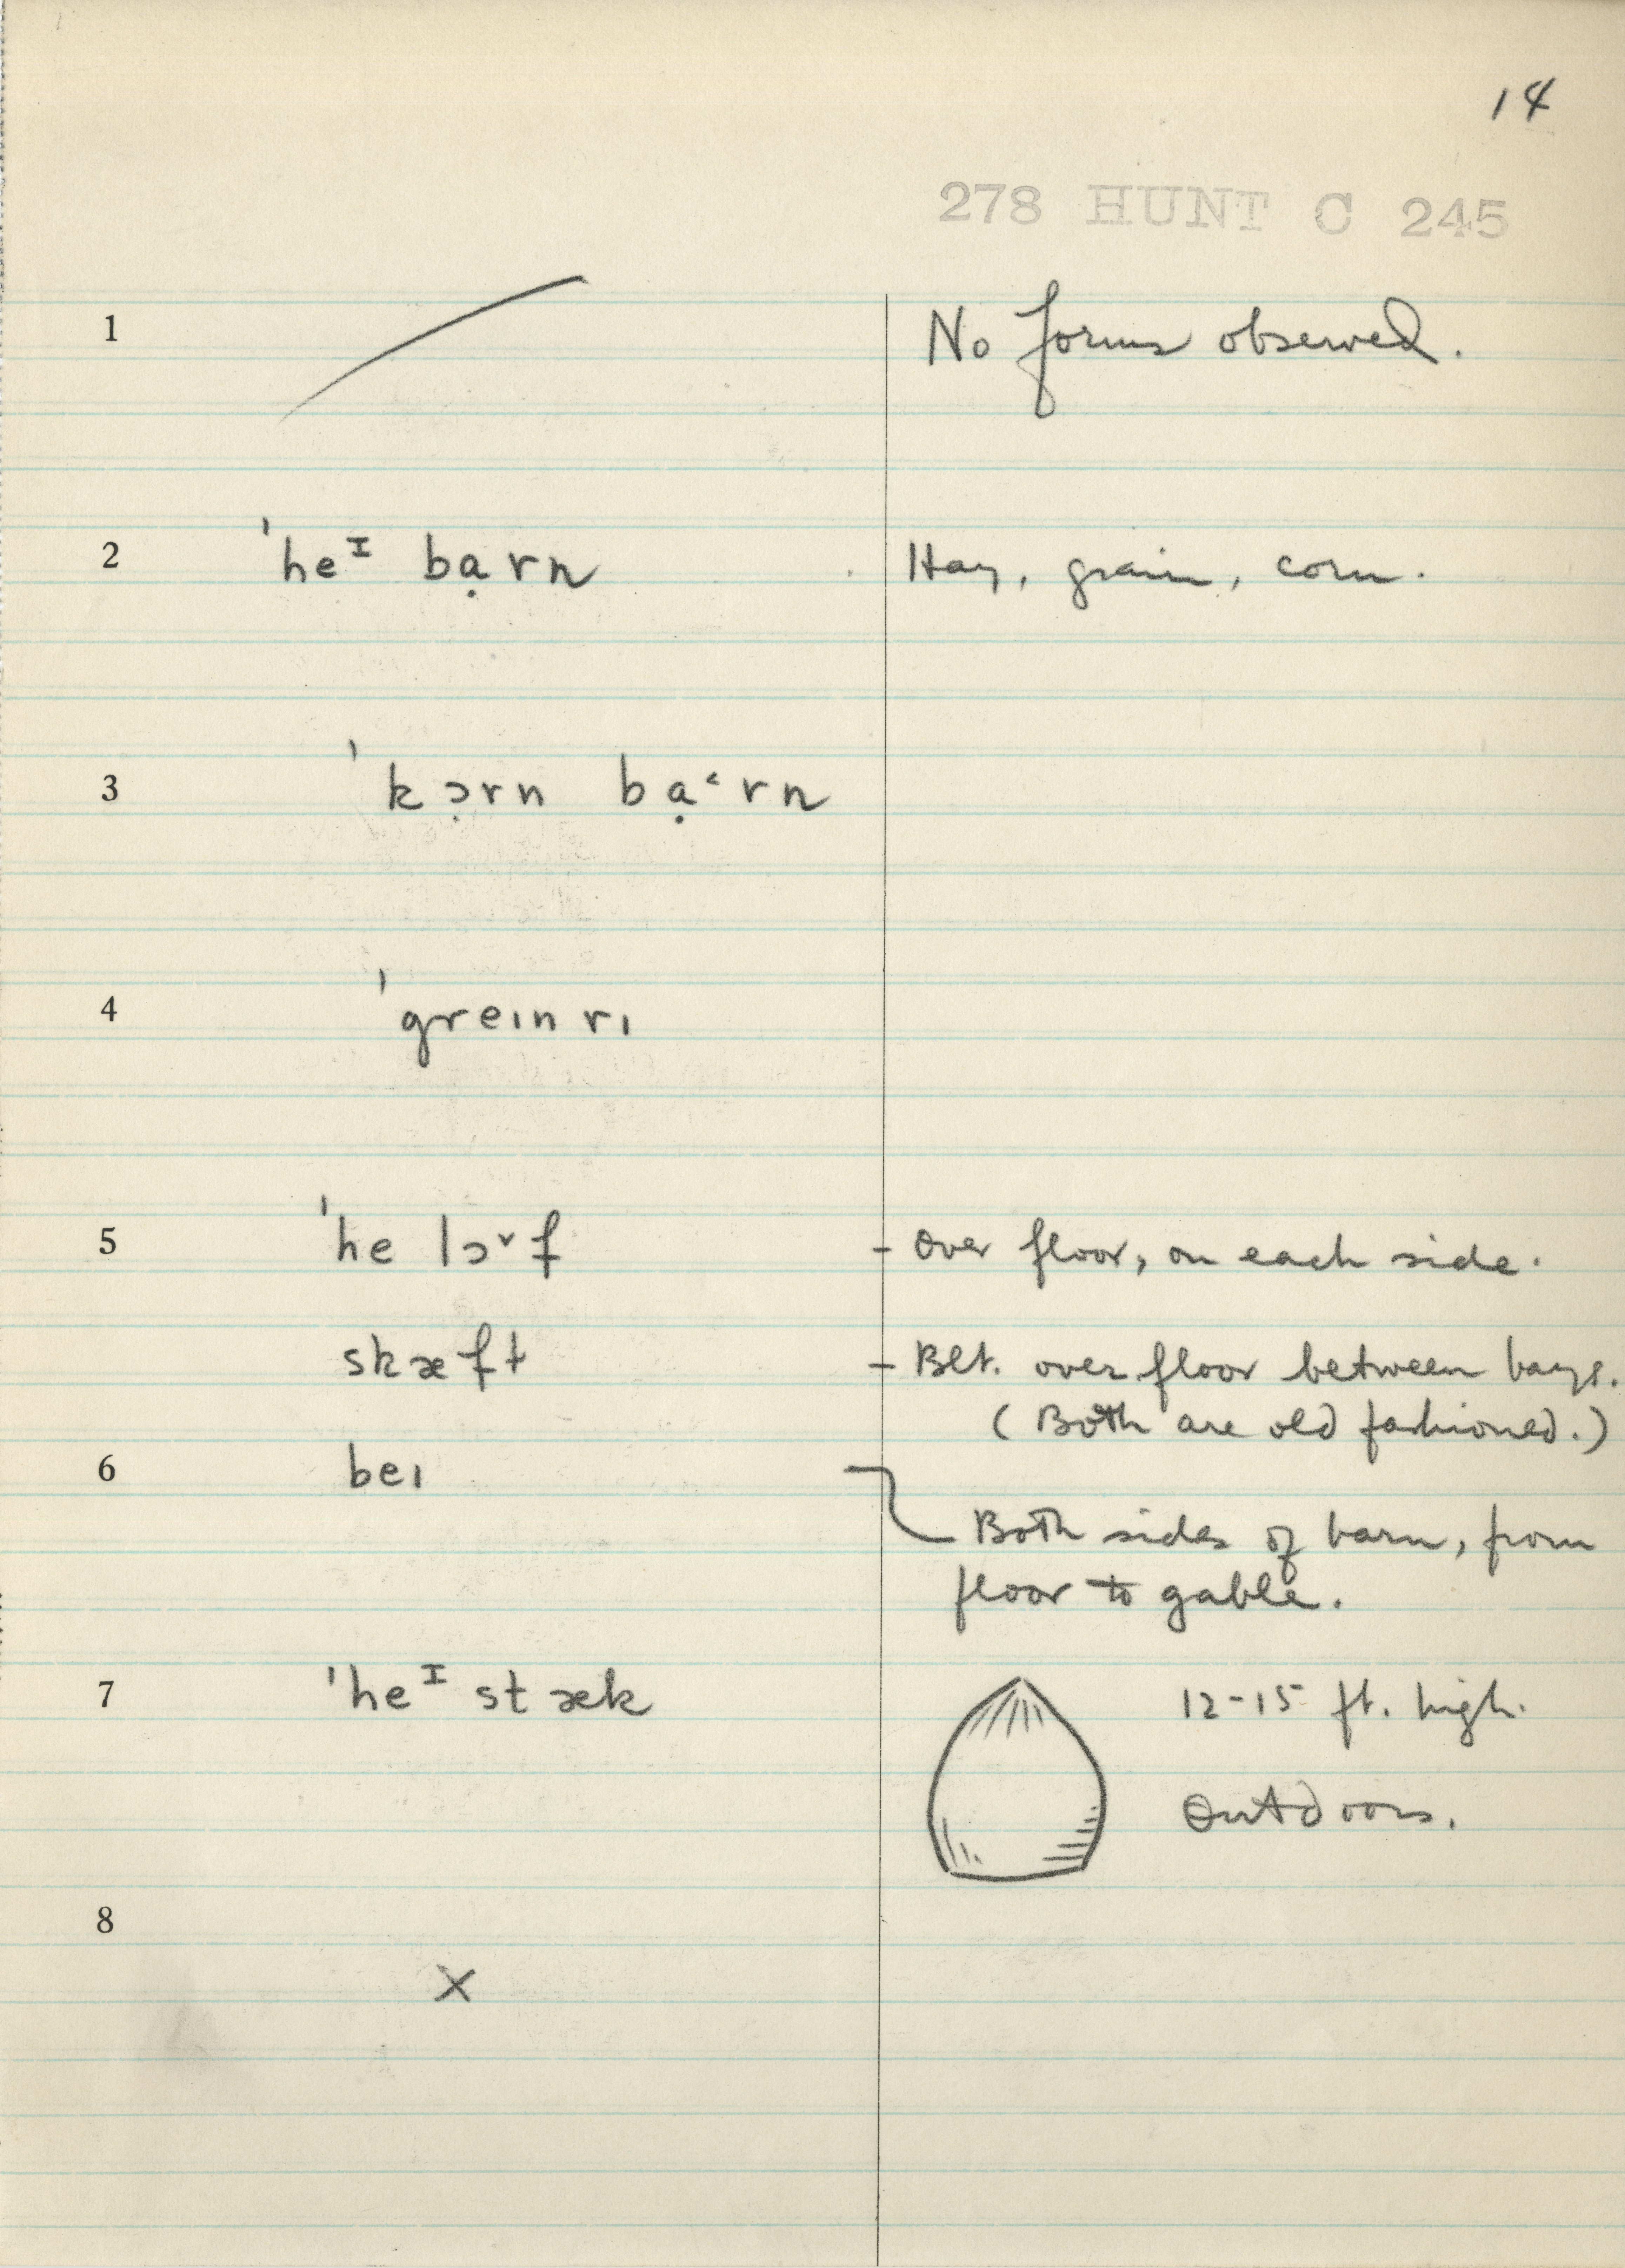 14
278 HUNT C 245
1 No forms observed.
2 ˈheᴵ bạrn Hay, grain, corn.
3 ˈkɔ̣rn bạ˂rn
4 ˈgreɪnrɪ
5 ˈhe lɔ˅f - Over floor, on each side.
skæft - Blt. over floor between bays.
(Both are old fashioned.)
6 beɪ
Both sides of barn, from
floor to gable.
7 ˈheᴵ stæk 12-15 ft. high.
Outdoors.
8
X